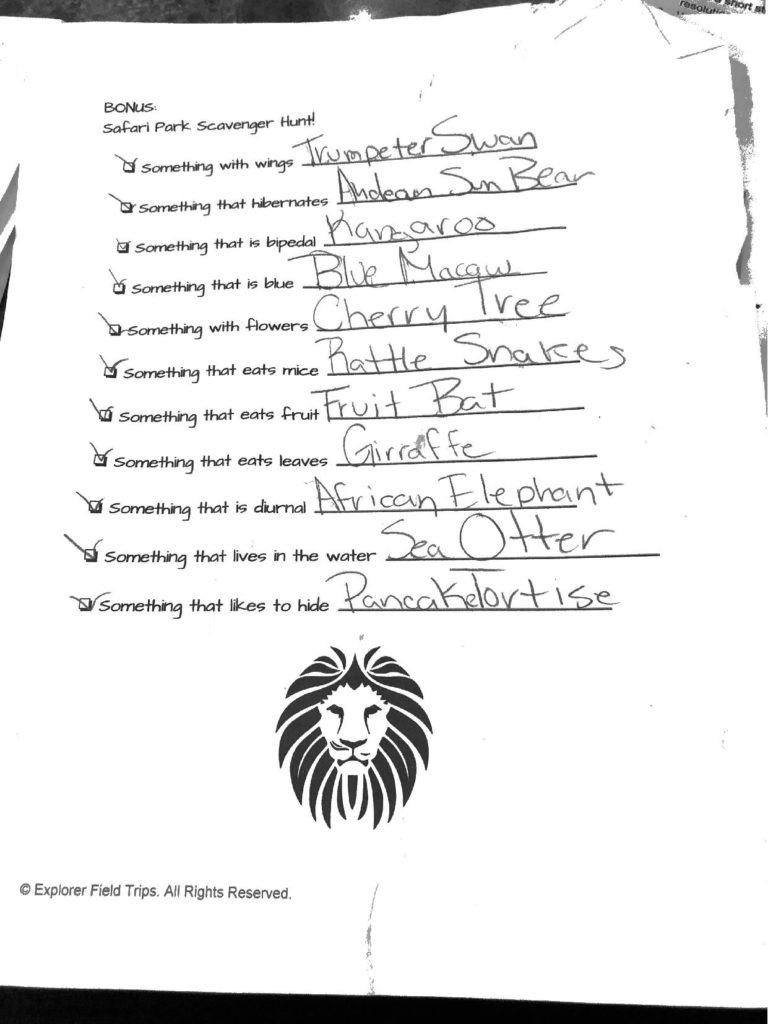 short st
resoluti
BONUS:
Safari Park Scavenger Hunt!
Something with wings Trumpeter Swan
Something that hibernates Andean Sun Bear
Something that is bipedal Kangaroo
Something that is blue Blue Macaw
Something with flowers Cherry Tree
Something that eats mice Rattle Snakes
Something that eats fruit Fruit Bat
Something that eats leaves Girraffe
Something that is diurnal African Elephant
Something that lives in the water Sea Otter
Something that likes to hide Pancake Tortise
© Explorer Field Trips. All Rights Reserved.